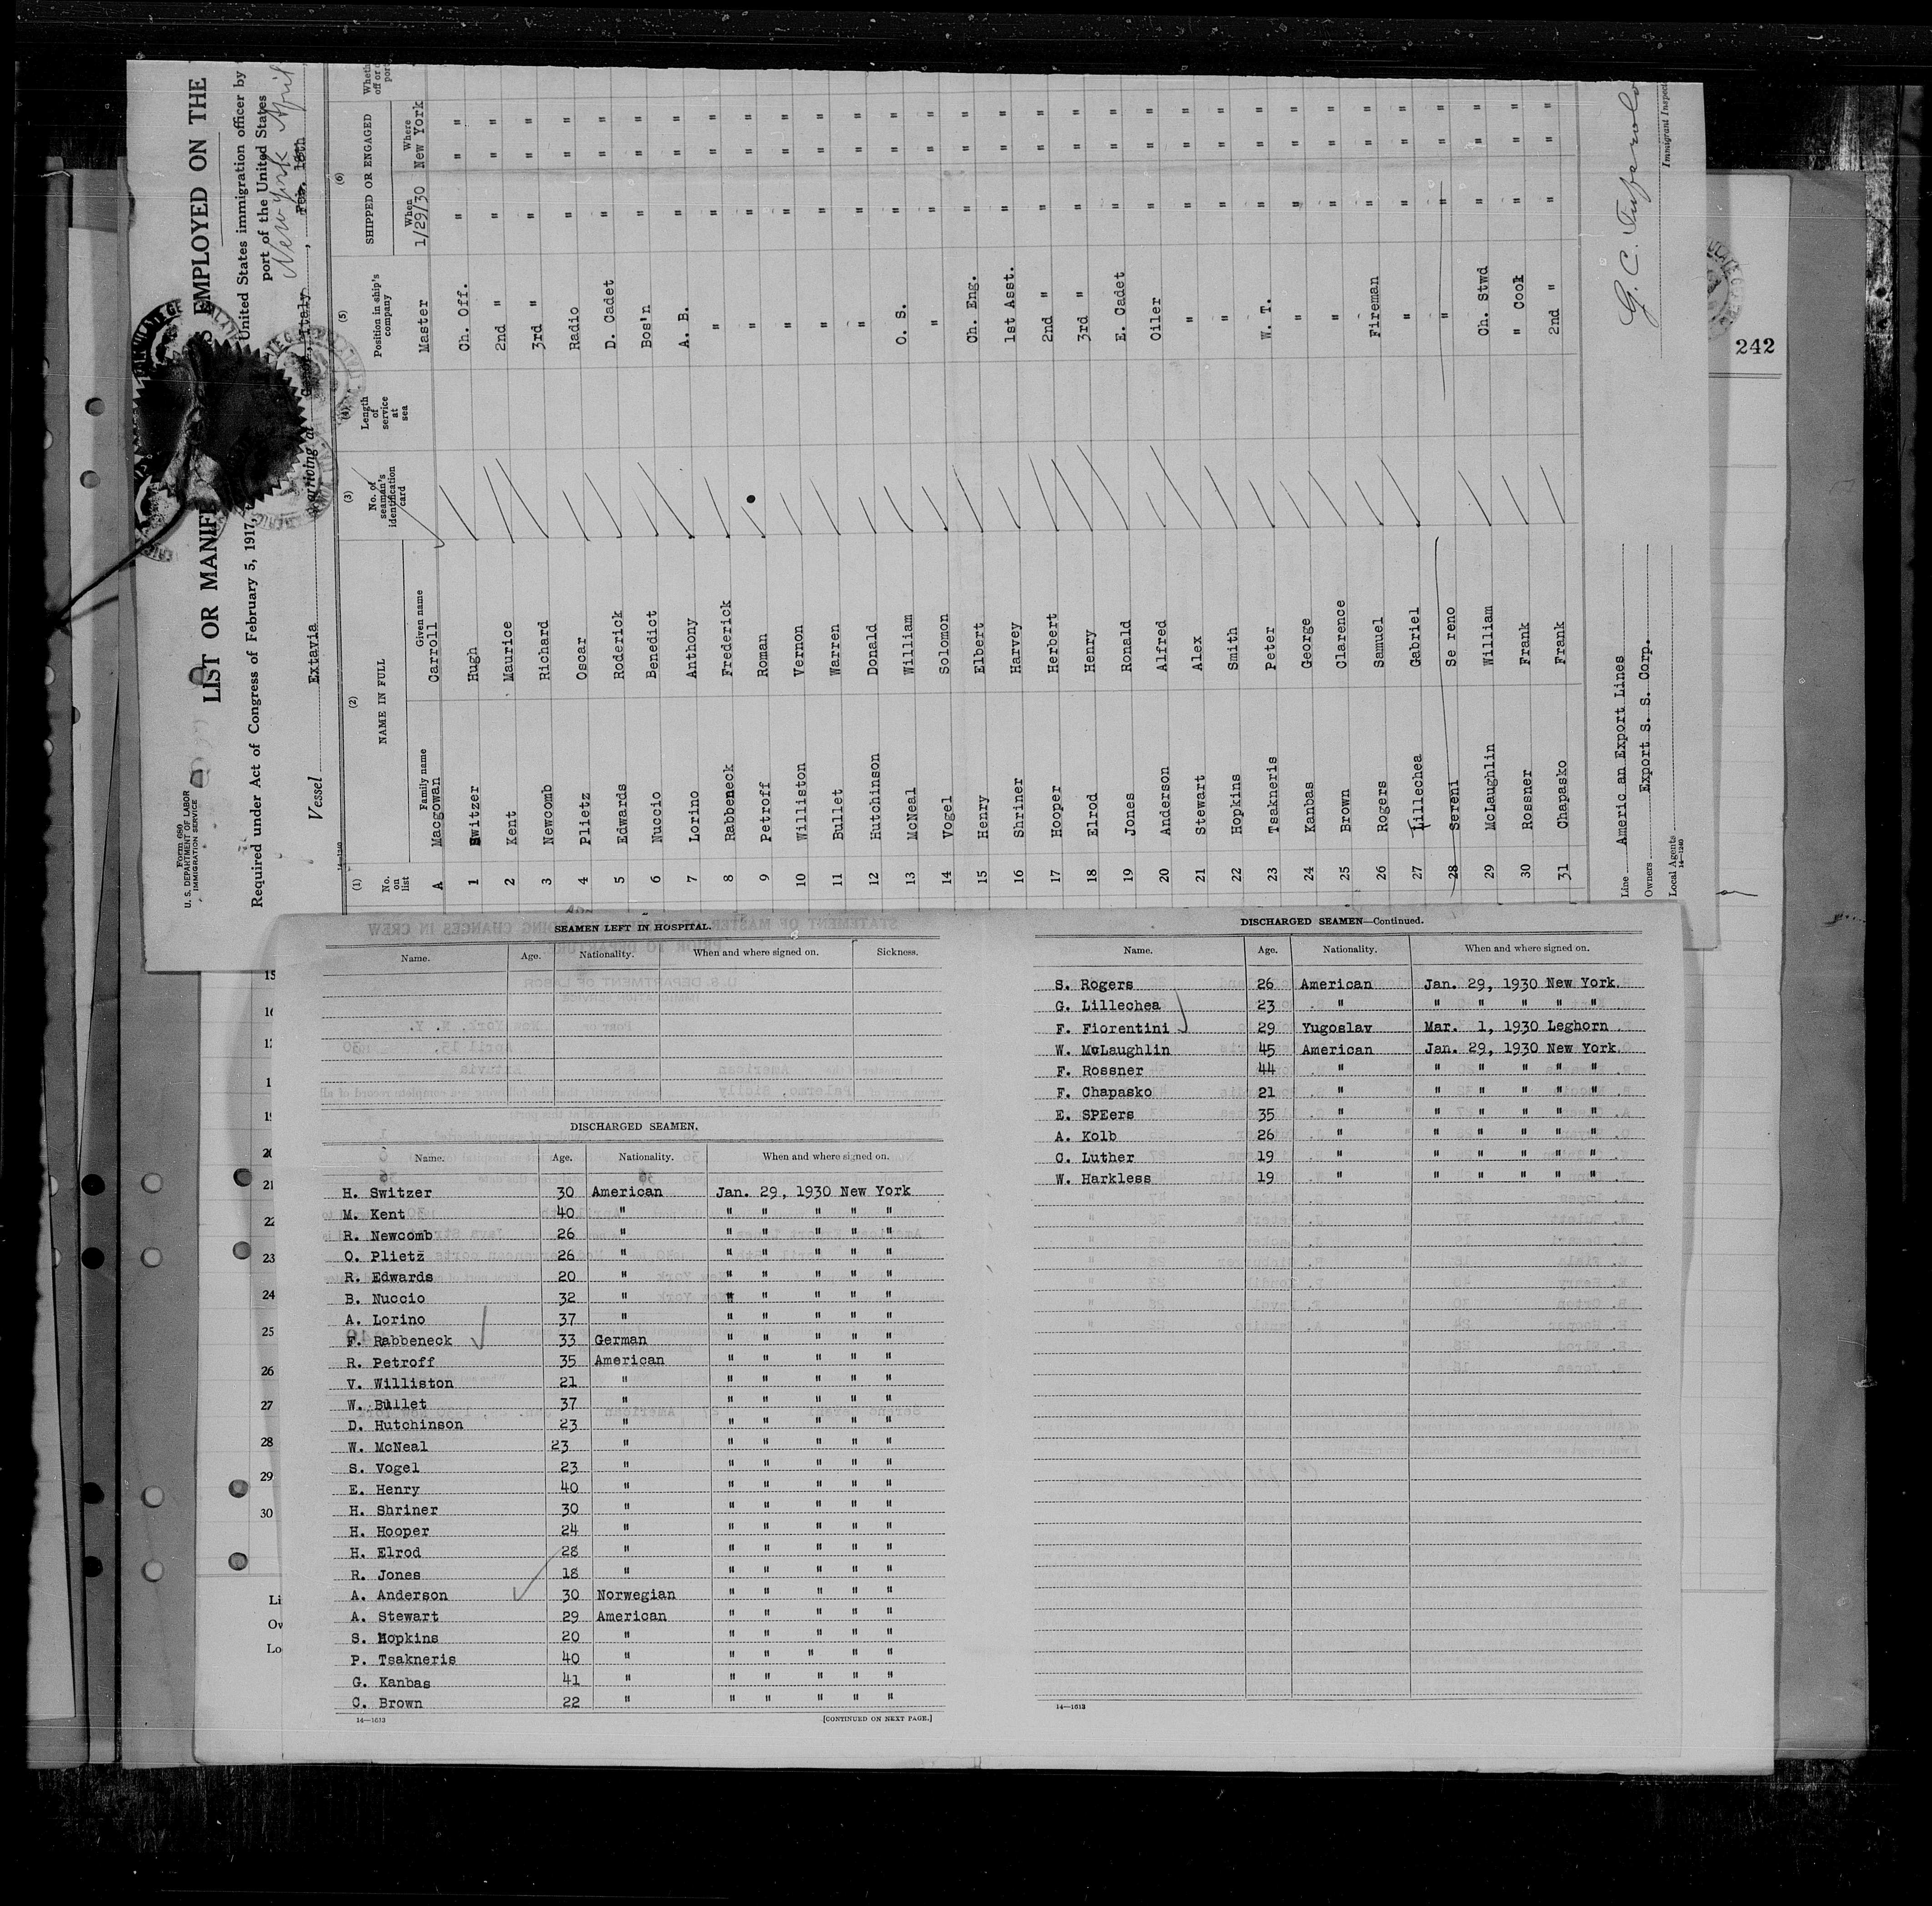 Form 680
U. S. DEPARTMENT OF LABOR
IMMIGRATION SERVICE
LIST OR MANIFE S EMPLOYED ON THE
Required under Act of Congress of February 5, 1917, United States immigration officer by
port of the United States
Vessel Extavia arriving at Italy, Feb. 18th New York April
14—1240
(1) (2) (3) (4) (5) (6)
No. on list NAME IN FULL No. of seaman's identification card Length of service at sea Position in ship's company SHIPPED OR ENGAGED Wheth off or port
Family name Given name When Where
A Macgowan Carroll Master 1/29/30 New York
1 Switzer Hugh Ch. Off. " " "
2 Kent Maurice 2nd " " " "
3 Newcomb Richard 3rd " " " "
4 Plietz Oscar Radio " " "
5 Edwards Roderick D. Cadet " " "
6 Nuccio Benedict Bos'n " " "
7 Lorino Anthony A. B. " " "
8 Rabbeneck Frederick " " " "
9 Petroff Roman " " " "
10 Williston Vernon " " " "
11 Bullet Warren " " " "
12 Hutchinson Donald " " " "
13 McNeal William O. S. " " "
14 Vogel Solomon " " " "
15 Henry Elbert Ch. Eng. " " "
16 Shriner Harvey 1st Asst. " " "
17 Hooper Herbert 2nd " " " "
18 Elrod Henry 3rd " " " "
19 Jones Ronald E. Cadet " " "
20 Anderson Alfred Oiler " " "
21 Stewart Alex " " " "
22 Hopkins Smith " " " "
23 Tsakneris Peter W. T. " " "
24 Kanbas George " " " "
25 Brown Clarence " " " "
26 Rogers Samuel Fireman " " "
27 Lillechea Gabriel " " " "
28 Sereni Se reno " " " "
29 McLaughlin William Ch. Stwd " " "
30 Rossner Frank " Cook " " "
31 Chapasko Frank 2nd " " " "
Line Americ an Export Lines
Owners Export S. S. Corp.
Local Agents
14—1240
G. C.
Immigrant Inspec
242
15
16
1
19
20
21
22
23
24
25
26
27
28
29
30
Li
Ow
Lo
SEAMEN LEFT IN HOSPITAL.
Name. Age. Nationality. When and where signed on. Sickness.
DISCHARGED SEAMEN.
Name. Age. Nationality. When and where signed on.
H. Switzer 30 American Jan. 29, 1930 New York
M. Kent 40 " " " " " "
R. Newcomb 26 " " " " " "
O. Plietz 26 " " " " " "
R. Edwards 20 " " " " " "
B. Nuccio 32 " " " " " "
A. Lorino 37 " " " " " "
F. Rabbeneck 33 German " " " " "
R. Petroff 35 American " " " " "
V. Williston 21 " " " " " "
W. Bullet 37 " " " " " "
D. Hutchinson 23 " " " " " "
W. McNeal 23 " " " " " "
S. Vogel 23 " " " " " "
E. Henry 40 " " " " " "
H. Shriner 30 " " " " " "
H. Hooper 24 " " " " " "
H. Elrod 28 " " " " " "
R. Jones 18 " " " " " "
A. Anderson 30 Norwegian " " " " "
A. Stewart 29 American " " " " "
S. Hopkins 20 " " " " " "
P. Tsakneris 40 " " " " " "
G. Kanbas 41 " " " " " "
C. Brown 22 " " " " " "
14—1613 [CONTINUED ON NEXT PAGE.]
DISCHARGED SEAMEN—Continued.
Name. Age. Nationality. When and where signed on.
S. Rogers 26 American Jan. 29, 1930 New York.
G. Lillechea 23 " " " " " "
F. Fiorentini 29 Yugoslav Mar. 1, 1930 Leghorn
W. McLaughlin 45 American Jan. 29, 1930 New York.
F. Rossner 44 " " " " " "
F. Chapasko 21 " " " " " "
E. SPEers 35 " " " " " "
A. Kolb 26 " " " " " "
C. Luther 19 " " " " " "
W. Harkless 19 " " " " " "
14—1613